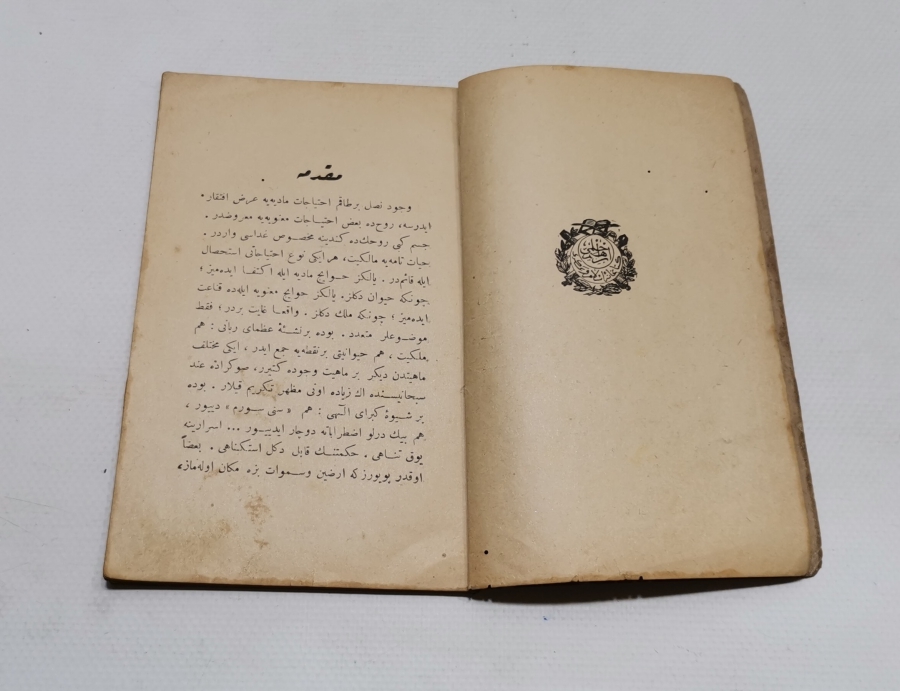 مقدمه
وجود نصل بر طاقم احتیاجات مادیه‌یه عرض افتقار
ایدرسه، روح‌ده بعض احتیاجات معنویه‌یه معروضدر .
جسم کبی روحك‌ده کندینه مخصوص غداسی واردر .
حیات تامه‌یه مالکیت، هر ایکی نوع احتیاجاتی استحصال
ایله قائم‌در . یالکز حوایج مادیه ایله اکتفا ایده‌میز ؛
چونکه حیوان دکلز. یالکز حوایج معنویه ایله‌ده قناعت
ایده‌میز ؛ چونکه ملك دکلز . واقعا غایت بردر ؛ فقط
موضوعلر متعدد . بوده بر نشئهٔ عظمای ربانی : هم
ملکیت ، هم حیوانیتی بر نقطه‌یه جمع ایدر ، ایکی مختلف
ماهیتدن دیکر بر ماهیت وجوده کتیرر، صوکراده عند
سبحانیسنده اك زیاده اونی مظهر تکریم قیلار . بوده
بر شیوهٔ کبرای الٓهی : هم «سنی سورم» دییور ،
هم بیك درلو اضطراباته دوچار ایدییور ... اسرارینه
یوق تناهی . حکمتنك قابل دکل استکناهی . بعضاً
اوقدر بویورز که ارضین وسموات بزه مکان اوله‌ماز،